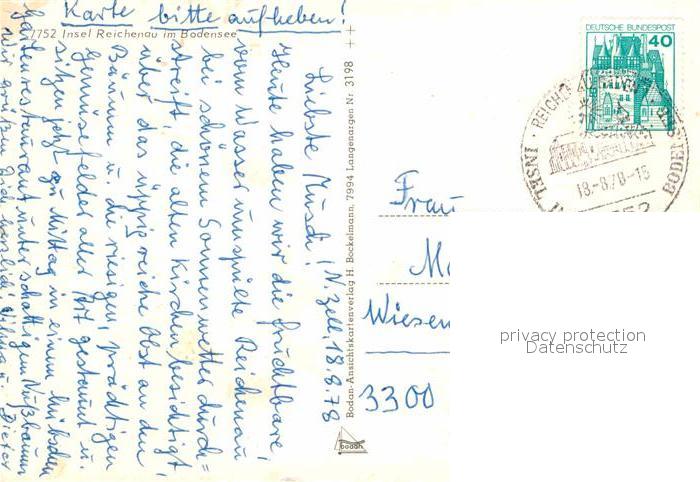 Karte bitte aufheben!
7752 Insel Reichenau im Bodensee
N. Zell, 18.8.78
Liebste Musch!
Heute haben wir die fruchtbare,
vom Wasser umspülte Reichenau
bei schönem Sonnenwetter durch=
streift, die alten Kirchen besichtigt,
über das üppig reiche Obst an den
Bäumen u. die riesigen, prächtigen
Gemüsefelder aller Art gestaunt u.
sitzen jetzt zu Mittag in einem hübschen
Gartenrestaurant unter schattigen Nußbäumen
Wir grüßen Dich herzlich! u. Dieter
++
Bodan-Ansichtskartenverlag H. Bockelmann, 7994 Langenargen Nr. 3198
bodan
DEUTSCHE BUNDESPOST
40
INSEL REICHENAU BODENSEE
18-8.78-16
Frau
Wiesen
3300
privacy protection
Datenschutz